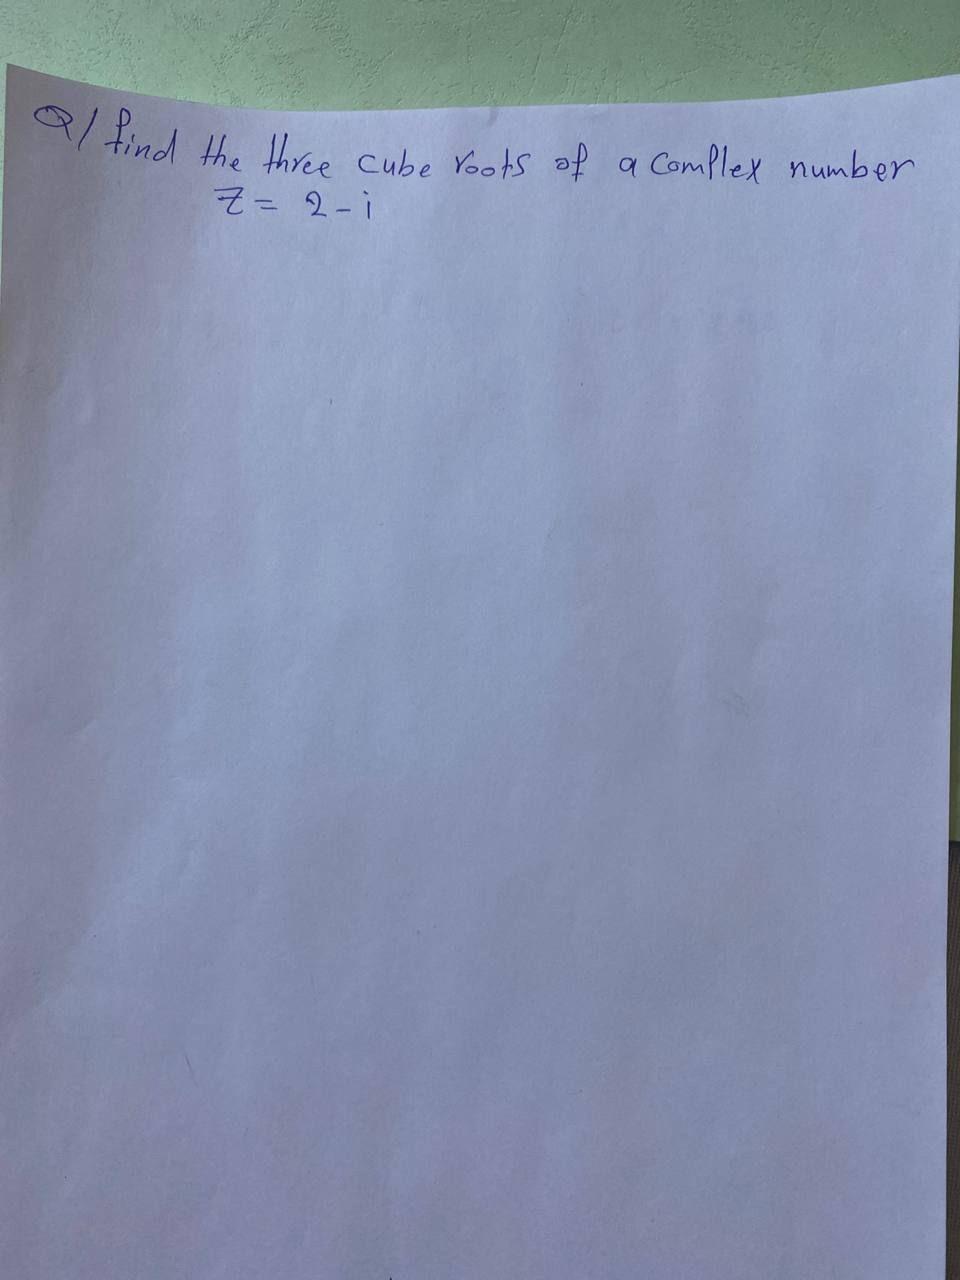 Q/ find the three cube roots of a complex number
z = 2 - i